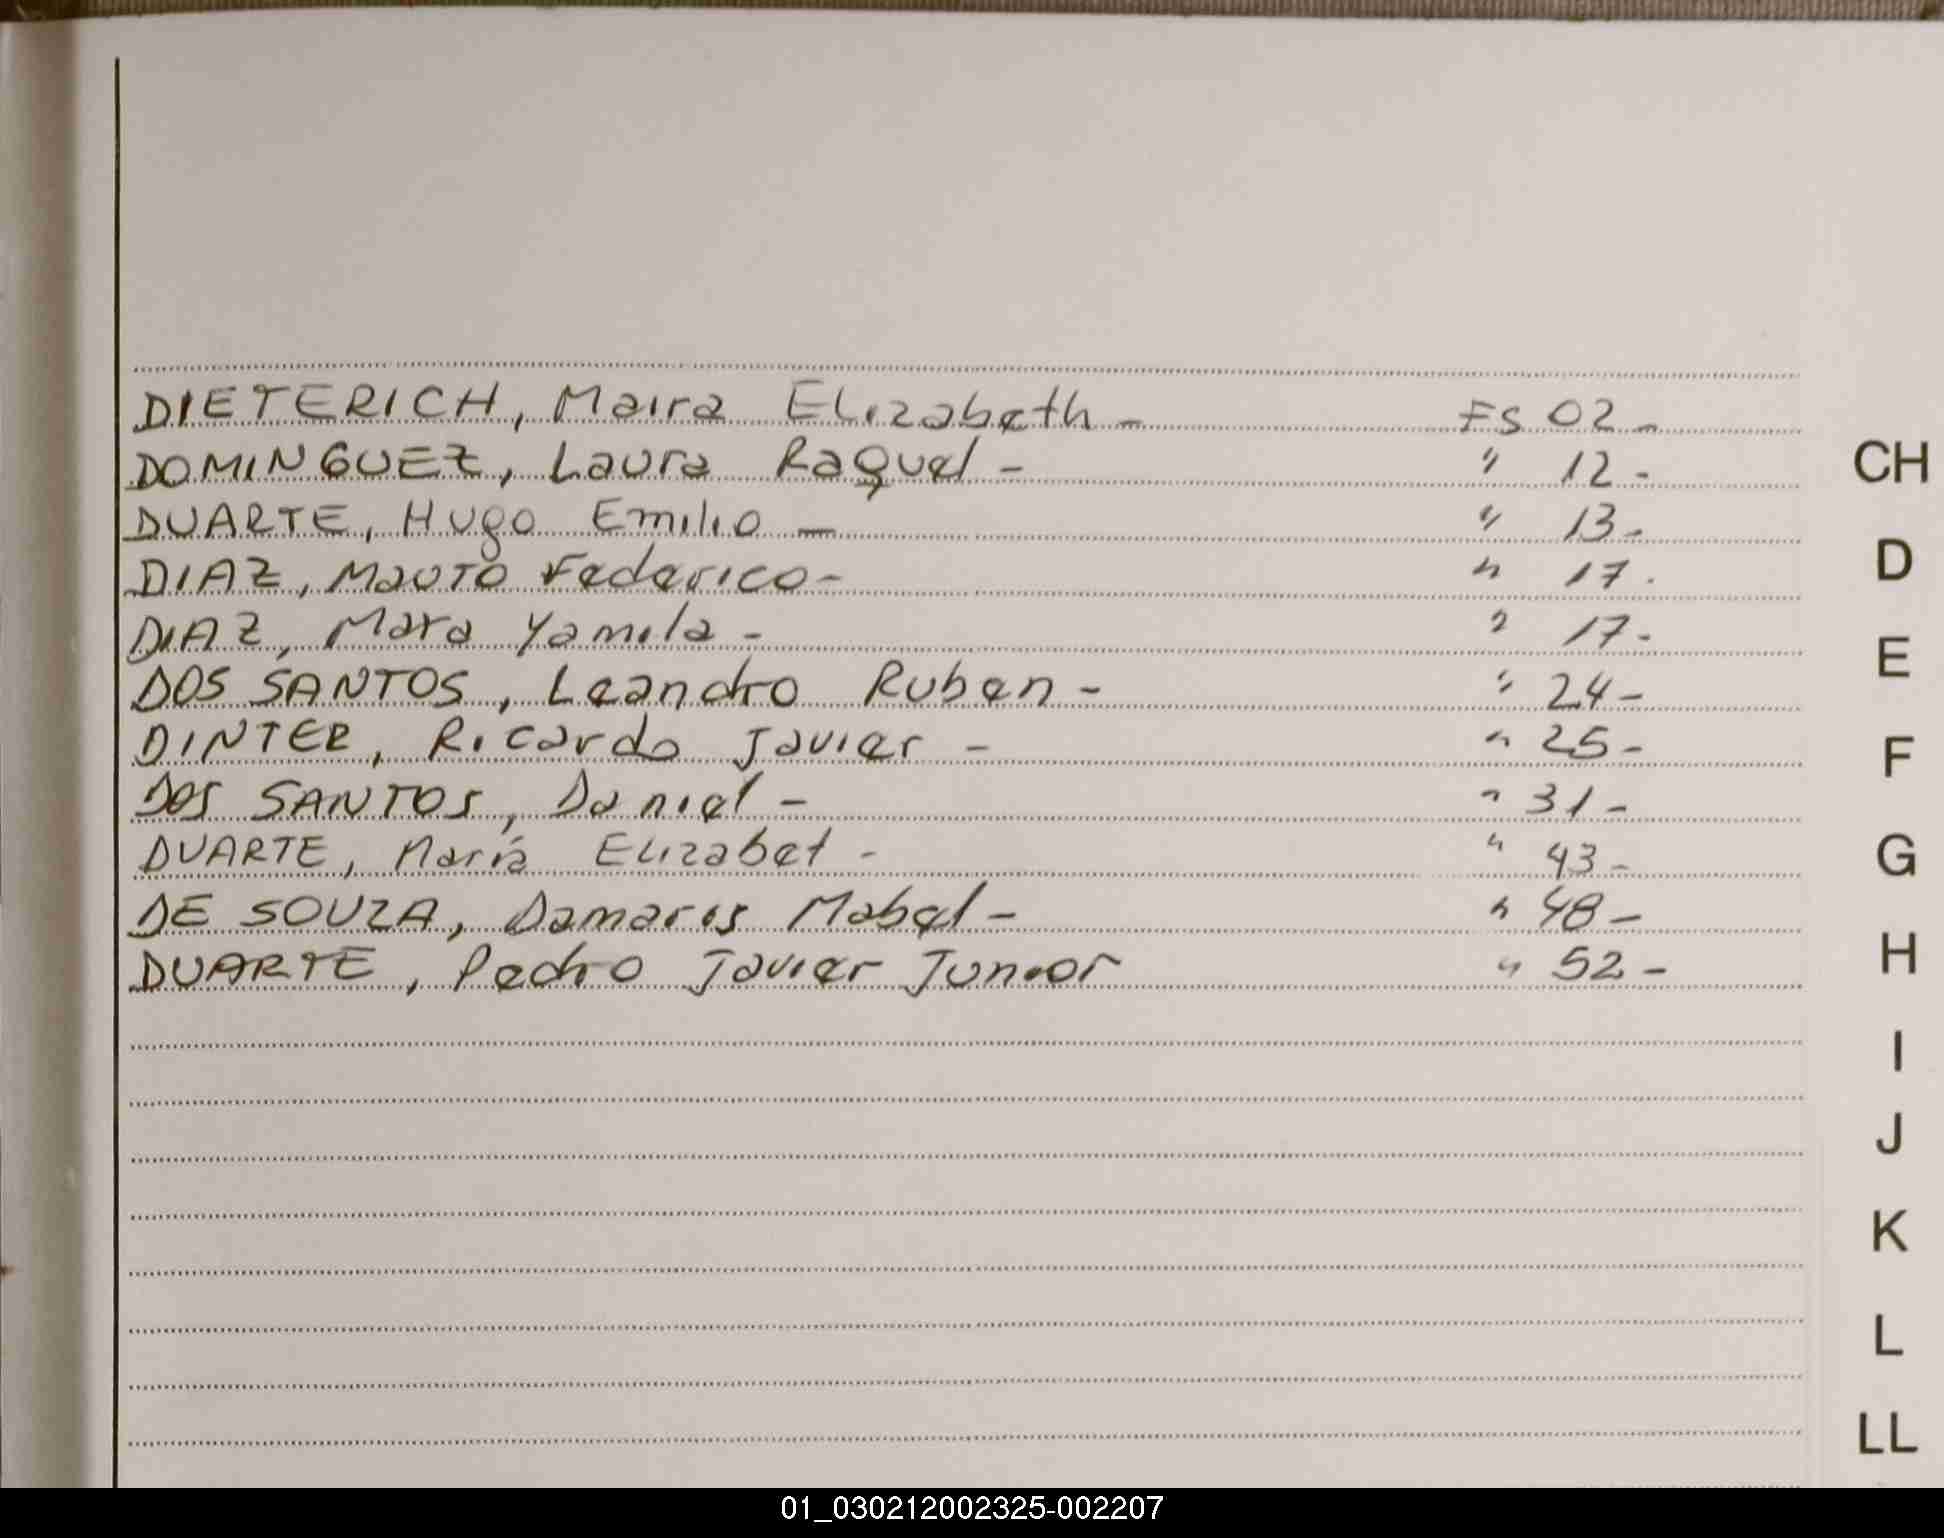 DIETERICH, Maira Elizabeth - FS 02 -
DOMINGUEZ, Laura Raquel - " 12 -
DUARTE, Hugo Emilio - " 13 -
DIAZ, Mauro Federico - " 17 .
DIAZ, Mara Yamila - " 17 -
DOS SANTOS, Leandro Ruben - " 24 -
DINTER, Ricardo Javier - " 25 -
DOS SANTOS, Daniel - " 31 -
DUARTE, María Elizabet - " 43 -
DE SOUZA, Damaris Mabel - " 48 -
DUARTE, Pedro Javier Junior " 52 -
CH
D
E
F
G
H
I
J
K
L
LL
01_030212002325-002207